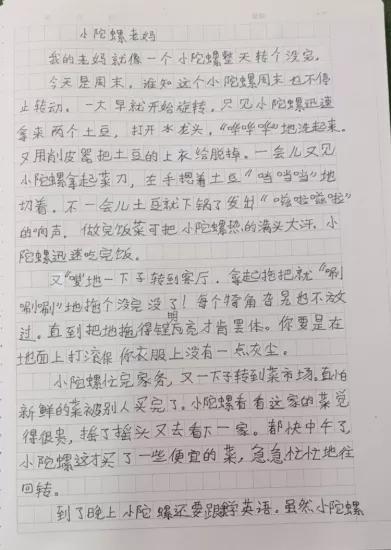 小陀螺老妈
我的老妈就像一个小陀螺整天转个没完。
今天是周末，谁知这个小陀螺周末也不停
止转动。一大早就开始旋转，只见小陀螺迅速
拿来两个土豆，打开水龙头，“哗哗哗”地洗起来。
又用削皮器把土豆的上衣给脱掉。一会儿又见
小陀螺拿起菜刀，左手摁着土豆“当当当”地
切着。不一会儿土豆就下锅了发出“嗞啦嗞啦”
的响声。做完饭菜可把小陀螺热的满头大汗，小
陀螺迅速吃完饭。
又“嗖”地一下子转到客厅，拿起拖把就“唰
唰唰”地拖个没完没了！每个犄角旮旯也不放
过。直到把地拖得锃明瓦亮才肯罢休。你要是在
地面上打滚保你衣服上没有一点灰尘。
小陀螺忙完家务，又一下子转到菜市场。直怕
新鲜的菜被别人买完了。小陀螺看看这家的菜觉
得很贵，摇了摇头又去看下一家。都快中午了，
小陀螺这才买了一些便宜的菜，急急忙忙地往
回转。
到了晚上小陀螺还要跟学英语。虽然小陀螺